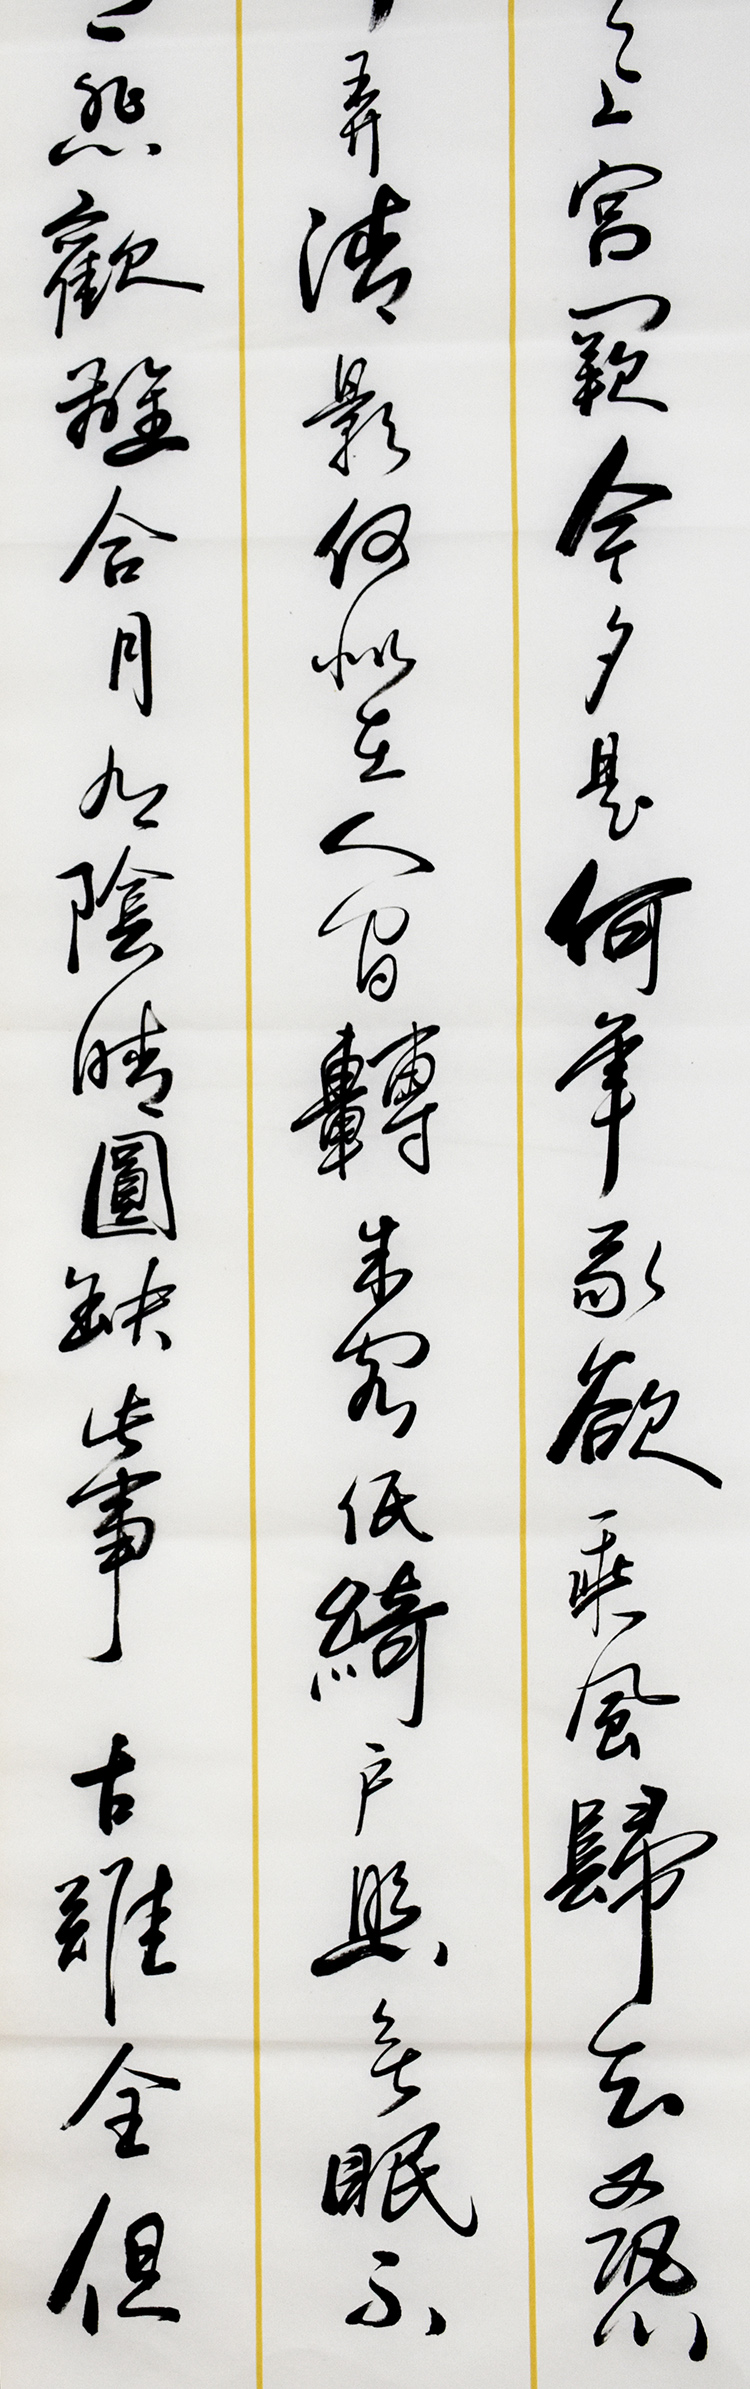 上宮闕今夕是何年我欲乘風歸去又恐
弄清影何似在人間轉朱閣低綺戶照無眠不
悲歡離合月有陰晴圓缺此事古難全但